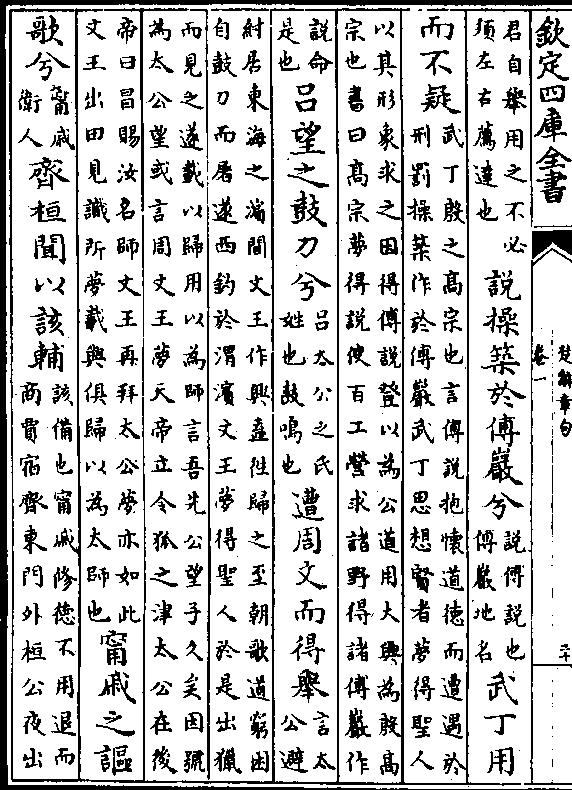 欽定四庫全書
楚辭章句
卷一
君自舉用之不必
須左右薦達也
說操築於傅巖兮
說傅說也
傅巖地名
武丁用
而不疑
武丁殷之髙宗也言傅說抱懷道德而遭遇於
刑罰操築作於傅巖武丁思想賢者夢得聖人
以其形象求之因得傅說登以為公道用大興為殷髙
宗也書曰髙宗夢得說使百工營求諸野得諸傅巖作
說命
是也
呂望之鼓刀兮
呂太公之氏
姓也鼓鳴也
遭周文而得舉
言太
公避
紂居東海之濵聞文王作興盍徃歸之至朝歌道窮困
自鼓刀而屠遂西釣於渭濵文王夢得聖人於是出獵
而見之遂載以歸用以為師言吾先公望子久矣因號
為太公望或言周文王夢天帝立令狐之津太公在後
帝曰昌賜汝名師文王再拜太公夢亦如此
文王出田見識所夢載與俱歸以為太師也
甯戚之謳
歌兮
甯戚
衛人
齊桓聞以該輔
該備也甯戚修德不用退而
商賈宿齊東門外桓公夜出